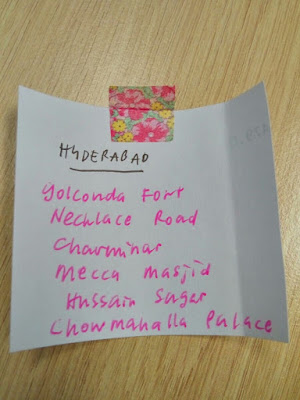 HYDERABAD
Golconda Fort
Necklace Road
Charminar
Mecca masjid
Hussain Sagar
Chowmahalla Palace